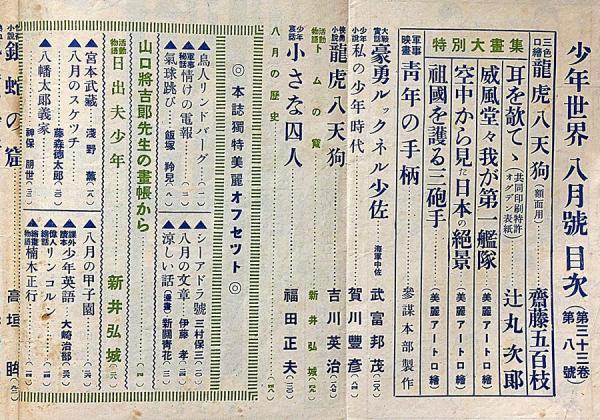 少年世界 八月號 目次
第三十三卷
第八號
三色口繪 龍虎八天狗(額面用) 齋藤五百枝
耳を欹てゝ(共同印刷特許 オグデン表紙) 辻丸次郎
特別大畫集
威風堂々我が第一艦隊(美麗アートロ繪)
空中から見た日本の絶景(美麗アートロ繪)
祖國を護る三砲手(美麗アートロ繪)
軍事映畫 靑年の手柄 參謀本部製作
大戰實話 豪勇ルックネル少佐 海軍中佐 武富邦茂
少年小説 私の少年時代 賀川豐彦
俠勇小説 龍虎八天狗 吉川英治
活動物語 トムの寶 新井弘城
少年哀話 小さな囚人 福田正夫
八月の歷史
◎本誌獨特美麗オフセット◎
▲鳥人リンドバーグ(一)
▲軍事秘聞 情けの電報
▲氣球跳び 飯塚羚兒
▲シーアドラ號 三村保三
▲八月の文章 伊藤孝
▲涼しい話(漫畫) 新關靑花
山口將吉郎先生の畫帳から
活動物語 日出夫少年 新井弘城
▲宮本武藏 淺野薫
▲八月のスケッチ 藤森德太郎
▲八幡太郎義家 神保朋世
▲八月の甲子園
▲課外讀本 少年英語 大崎治郎
▲偉人繪話 リンコルン
▲繪畫物語 楠木正行
銀蛇の窟 高垣眸